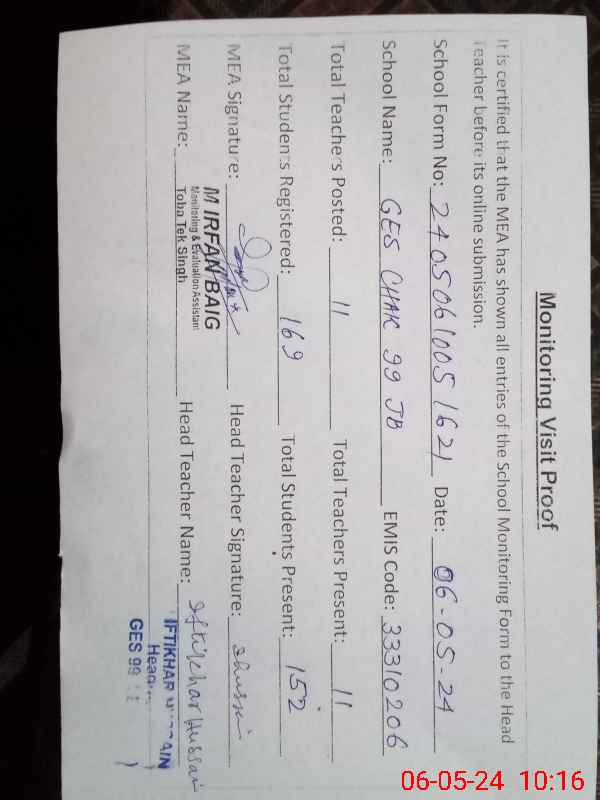 Monitoring Visit Proof
It is certified that the MEA has shown all entries of the School Monitoring Form to the Head
Teacher before its online submission.
School Form No: 2405061005 1621 Date: 06-05-24
School Name: GES CHAK 99 JB EMIS Code: 33310206
Total Teachers Posted: 11 Total Teachers Present: 11
Total Students Registered: 169 Total Students Present: 152
MEA Signature: Head Teacher Signature:
MEA Name: M IRFAN BAIG Head Teacher Name: Iftikhar Hussain
Monitoring & Evaluation Assistant
Toba Tek Singh
IFTIKHAR
GES 99
06-05-24 10:16